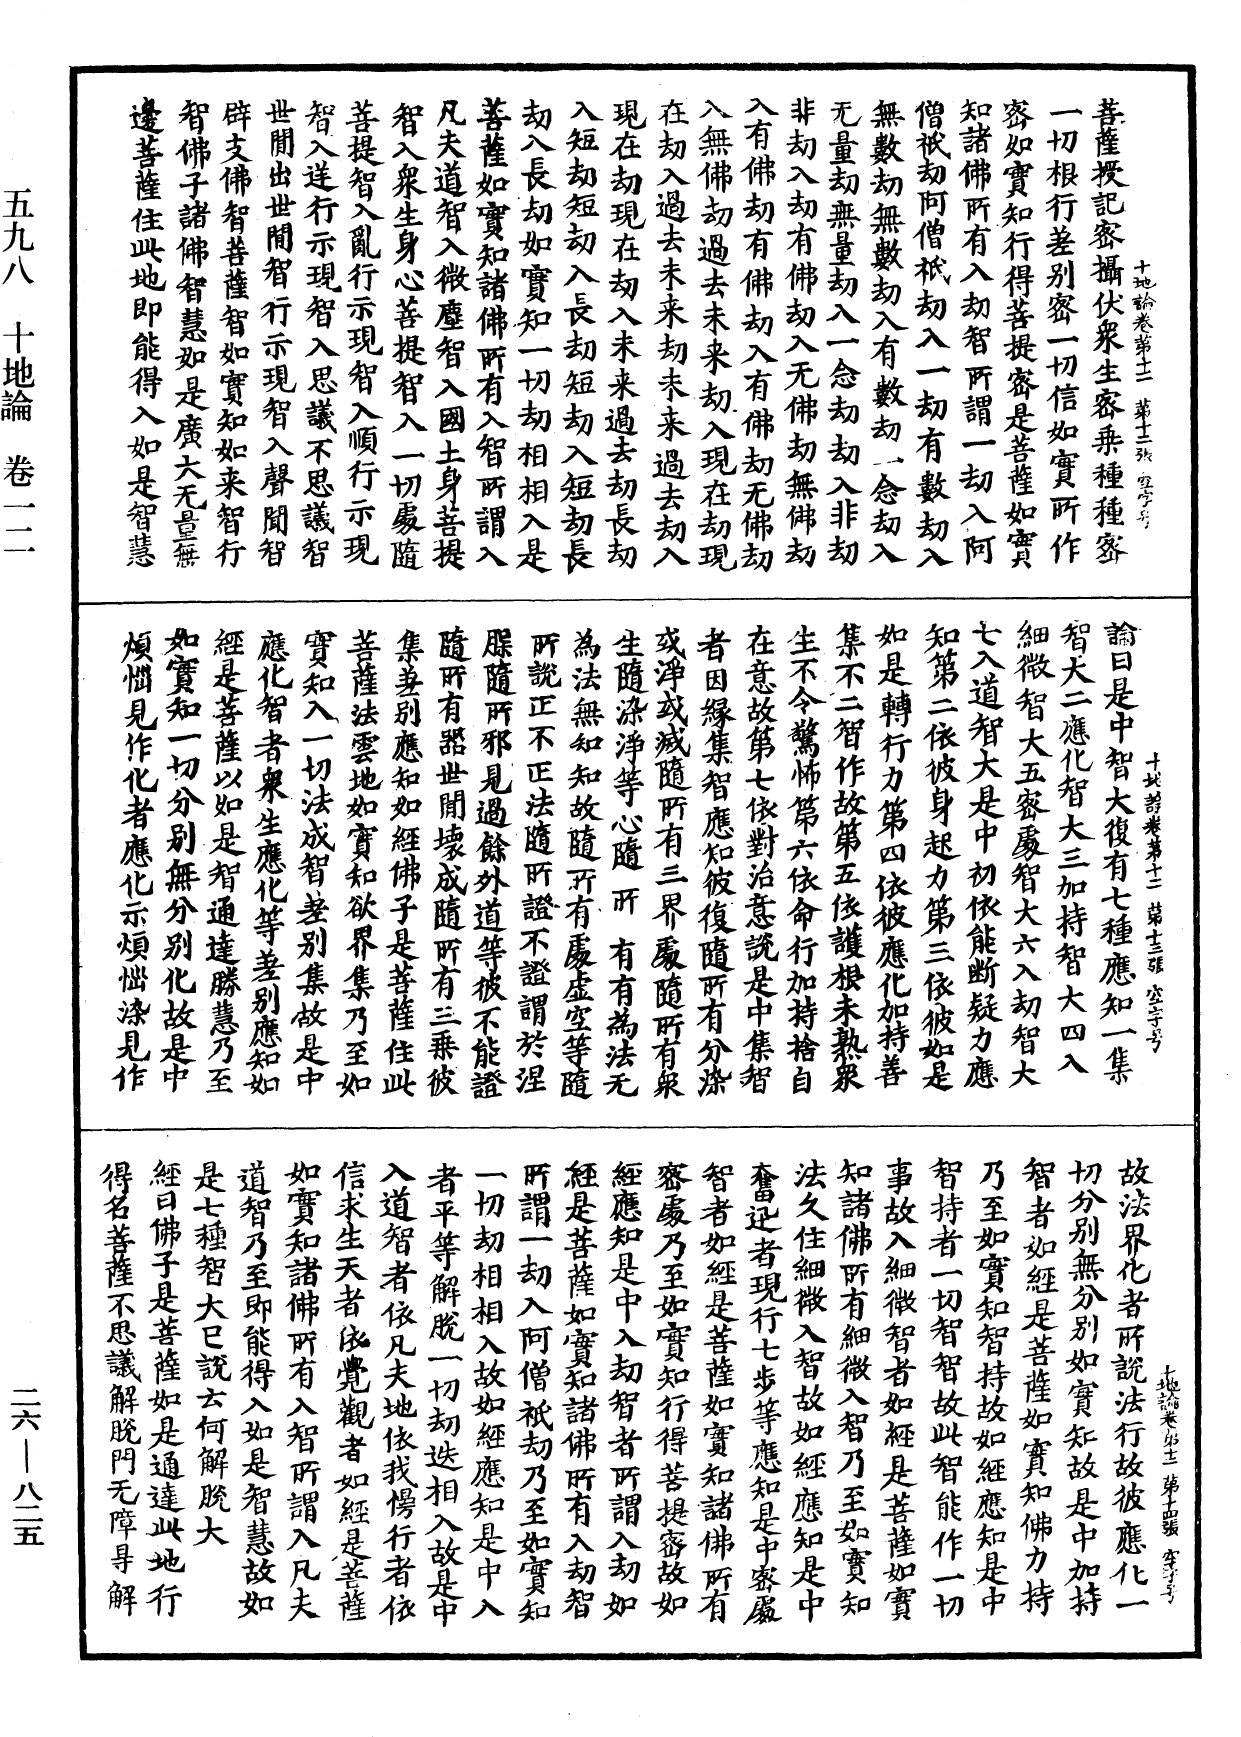 菩薩授記密攝伏衆生密乘種種密
一切根行差别密一切信如實所作
密如實知行得菩提密是菩薩如實
知諸佛所有入劫智所謂一劫入阿
僧祇劫阿僧祇劫入一劫有數劫入
無數劫無數劫入有數劫一念劫入
无量劫無量劫入一念劫劫入非劫
非劫入劫有佛劫入无佛劫無佛劫
入有佛劫有佛劫入有佛劫无佛劫
入無佛劫過去未來劫入現在劫現
在劫入過去未来劫未来過去劫入
現在劫現在劫入未来過去劫長劫
入短劫短劫入長劫短劫入短劫長
劫入長劫如實知一切劫相相入是
菩薩如實知諸佛所有入智所謂入
凡夫道智入微塵智入國土身菩提
智入衆生身心菩提智入一切處隨
菩提智入亂行示現智入順行示現
智入逆行示現智入思議不思議智
世間出世間智行示現智入聲聞智
辟支佛智菩薩智如實知如来智行
智佛子諸佛智慧如是廣大无量無
邊菩薩住此地即能得入如是智慧
十地論卷第十二 第十二張 空字号
論曰是中智大復有七種應知一集
智大二應化智大三加持智大四入
細微智大五密處智大六入劫智大
七入道智大是中初依能断疑力應
知第二依彼身起力第三依彼如是
如是轉行力第四依彼應化加持善
集不二智作故第五依護根未熟衆
生不令驚怖第六依命行加持捨自
在意故第七依對治意說是中集智
者因緣集智應知彼復隨所有分染
或淨或滅隨所有三界處隨所有衆
生隨染淨等心隨所有有為法无
為法無知知故隨所有處虚空等隨
所說正不正法隨所證不證謂於涅
脲隨所邪見過餘外道等彼不能證
隨所有器世間壞成隨所有三乘彼
集差别應知如經佛子是菩薩住此
菩薩法雲地如實知欲界集乃至如
實知入一切法成智差别集故是中
應化智者衆生應化等差别應知如
經是菩薩以如是智通達勝慧乃至
如實知一切分别無分别化故是中
煩惱見作化者應化示煩惱染見作
十地論卷第十二 第十三張 空字号
故法界化者所說法行故彼應化一
切分别無分别如實知故是中加持
智者如經是菩薩如實知佛力持
乃至如實知智持故如經應知是中
智持者一切智智故此智能作一切
事故入細微智者如經是菩薩如實
知諸佛所有細微入智乃至如實知
法久住細微入智故如經應知是中
奮迅者現行七步等應知是中密處
智者如經是菩薩如實知諸佛所有
密處乃至如實知行得菩提密故如
經應知是中入劫智者所謂入劫如
經是菩薩如實知諸佛所有入劫智
所謂一劫入阿僧祇劫乃至如實知
一切劫相相入故如經應知是中入
者平等解脫一切劫迭相入故是中
入道智者依凡夫地依我慢行者依
信求生天者依覺觀者如經是菩薩
如實知諸佛所有入智所謂入凡夫
道智乃至即能得入如是智慧故如
是七種智大已說云何解脫大
經曰佛子是菩薩如是通達此地行
得名菩薩不思議解脫門无障㝵解
十地論卷第十二 第十四張 空字号
五九八　十地論　卷一二
二六—八二五